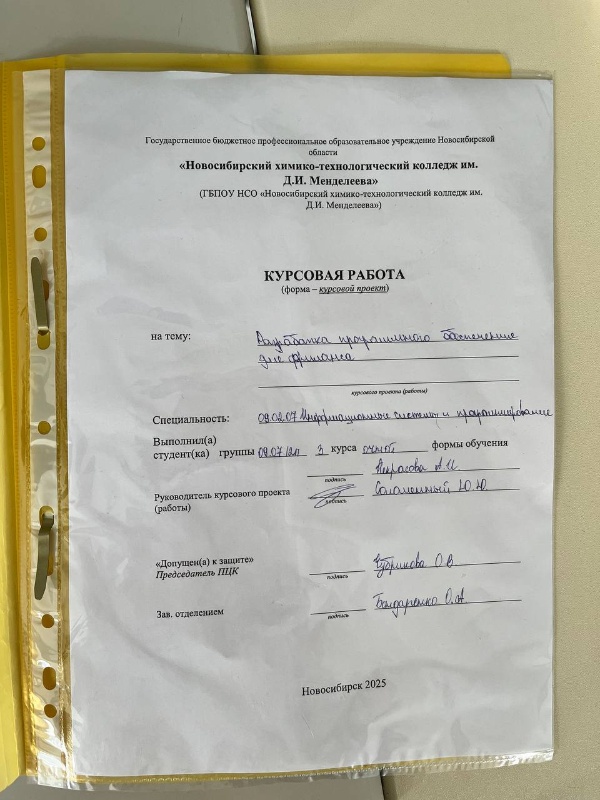 Государственное бюджетное профессиональное образовательное учреждение Новосибирской
области
«Новосибирский химико-технологический колледж им.
Д.И. Менделеева»
(ГБПОУ НСО «Новосибирский химико-технологический колледж им.
Д.И. Менделеева»)
КУРСОВАЯ РАБОТА
(форма – курсовой проект)
на тему: Разработка программного обеспечение
для фриланса
курсового проекта (работы)
Специальность: 09.02.07 Информационные системы и программирование
Выполнил(а)
студент(ка) группы 09.07 3 курса очной формы обучения
Некрасова А.И
подпись
Руководитель курсового проекта Соломенный Ю.Ю.
(работы) подпись
«Допущен(а) к защите»
Председатель ПЦК Чубрикова О.В
подпись
Зав. отделением Бондаренко О.А
подпись
Новосибирск 2025